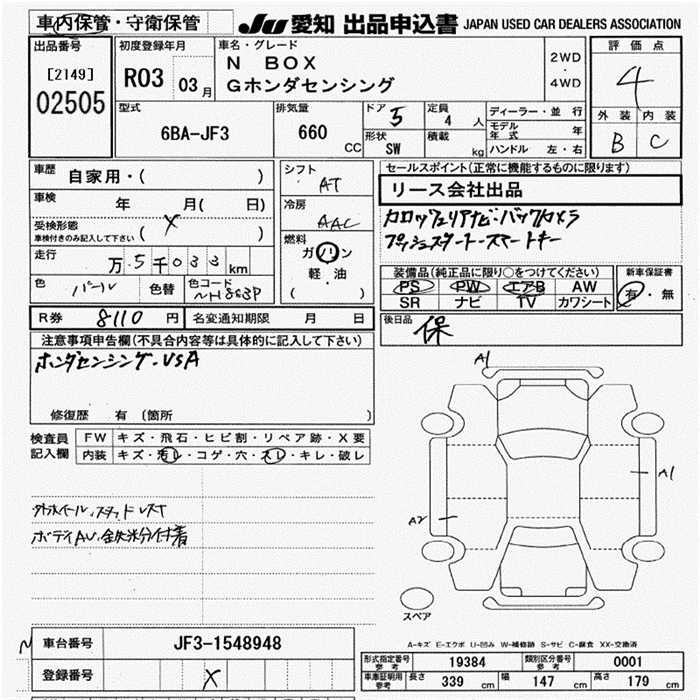 車内保管・守衛保管 JU 愛知 出品申込書 JAPAN USED CAR DEALERS ASSOCIATION
出品番号 初度登録年月 車名・グレード 評価点
[2149] R03 03月 N BOX 2WD・4WD 4
02505 Gホンダセンシング
型式 排気量 ドア 5 定員 4人 ディーラー・並行 外装 内装
6BA-JF3 660CC 形状 SW 積載 kg モデル年式 年 B C
ハンドル 左・右
車歴 自家用・( ) シフト AT セールスポイント(正常に機能するものに限ります)
車検 年 月( 日) 冷房 AAC リース会社出品
受検形態 ( X ) カロッツェリアナビ・バックカメラ
車検付きのみ記入して下さい
走行 万5千033km 燃料 ガソリン プッシュスタート・スマートキー
軽・油
( )
色 パール 色替 色コード NH883P 装備品(純正品に限り○をつけてください) 新車保証書
PS PW エアB AW 有・無
SR ナビ TV カワシート
R券 8110円 名変通知期限 月 日 後日品 保
注意事項申告欄(不具合内容等は具体的に記入して下さい)
ホンダセンシング・VSA
修復歴 有(箇所
検査員 FW キズ・飛石・ヒビ割・リペア跡・X要
記入欄 内装 キズ・汚レ・コゲ・穴・スレ・キレ・破レ
A1
A1
A2
ボディAU、鉄粉付着
スペア
A-キズ E-エクボ U-凹み W-補修跡 S-サビ C-腐食 XX-交換済
車台番号 JF3-1548948
登録番号 X
形式指定番号 参考 19384 類別区分番号 参考 0001
車庫証明用 参考 長さ 339cm 幅 147cm 高さ 179cm